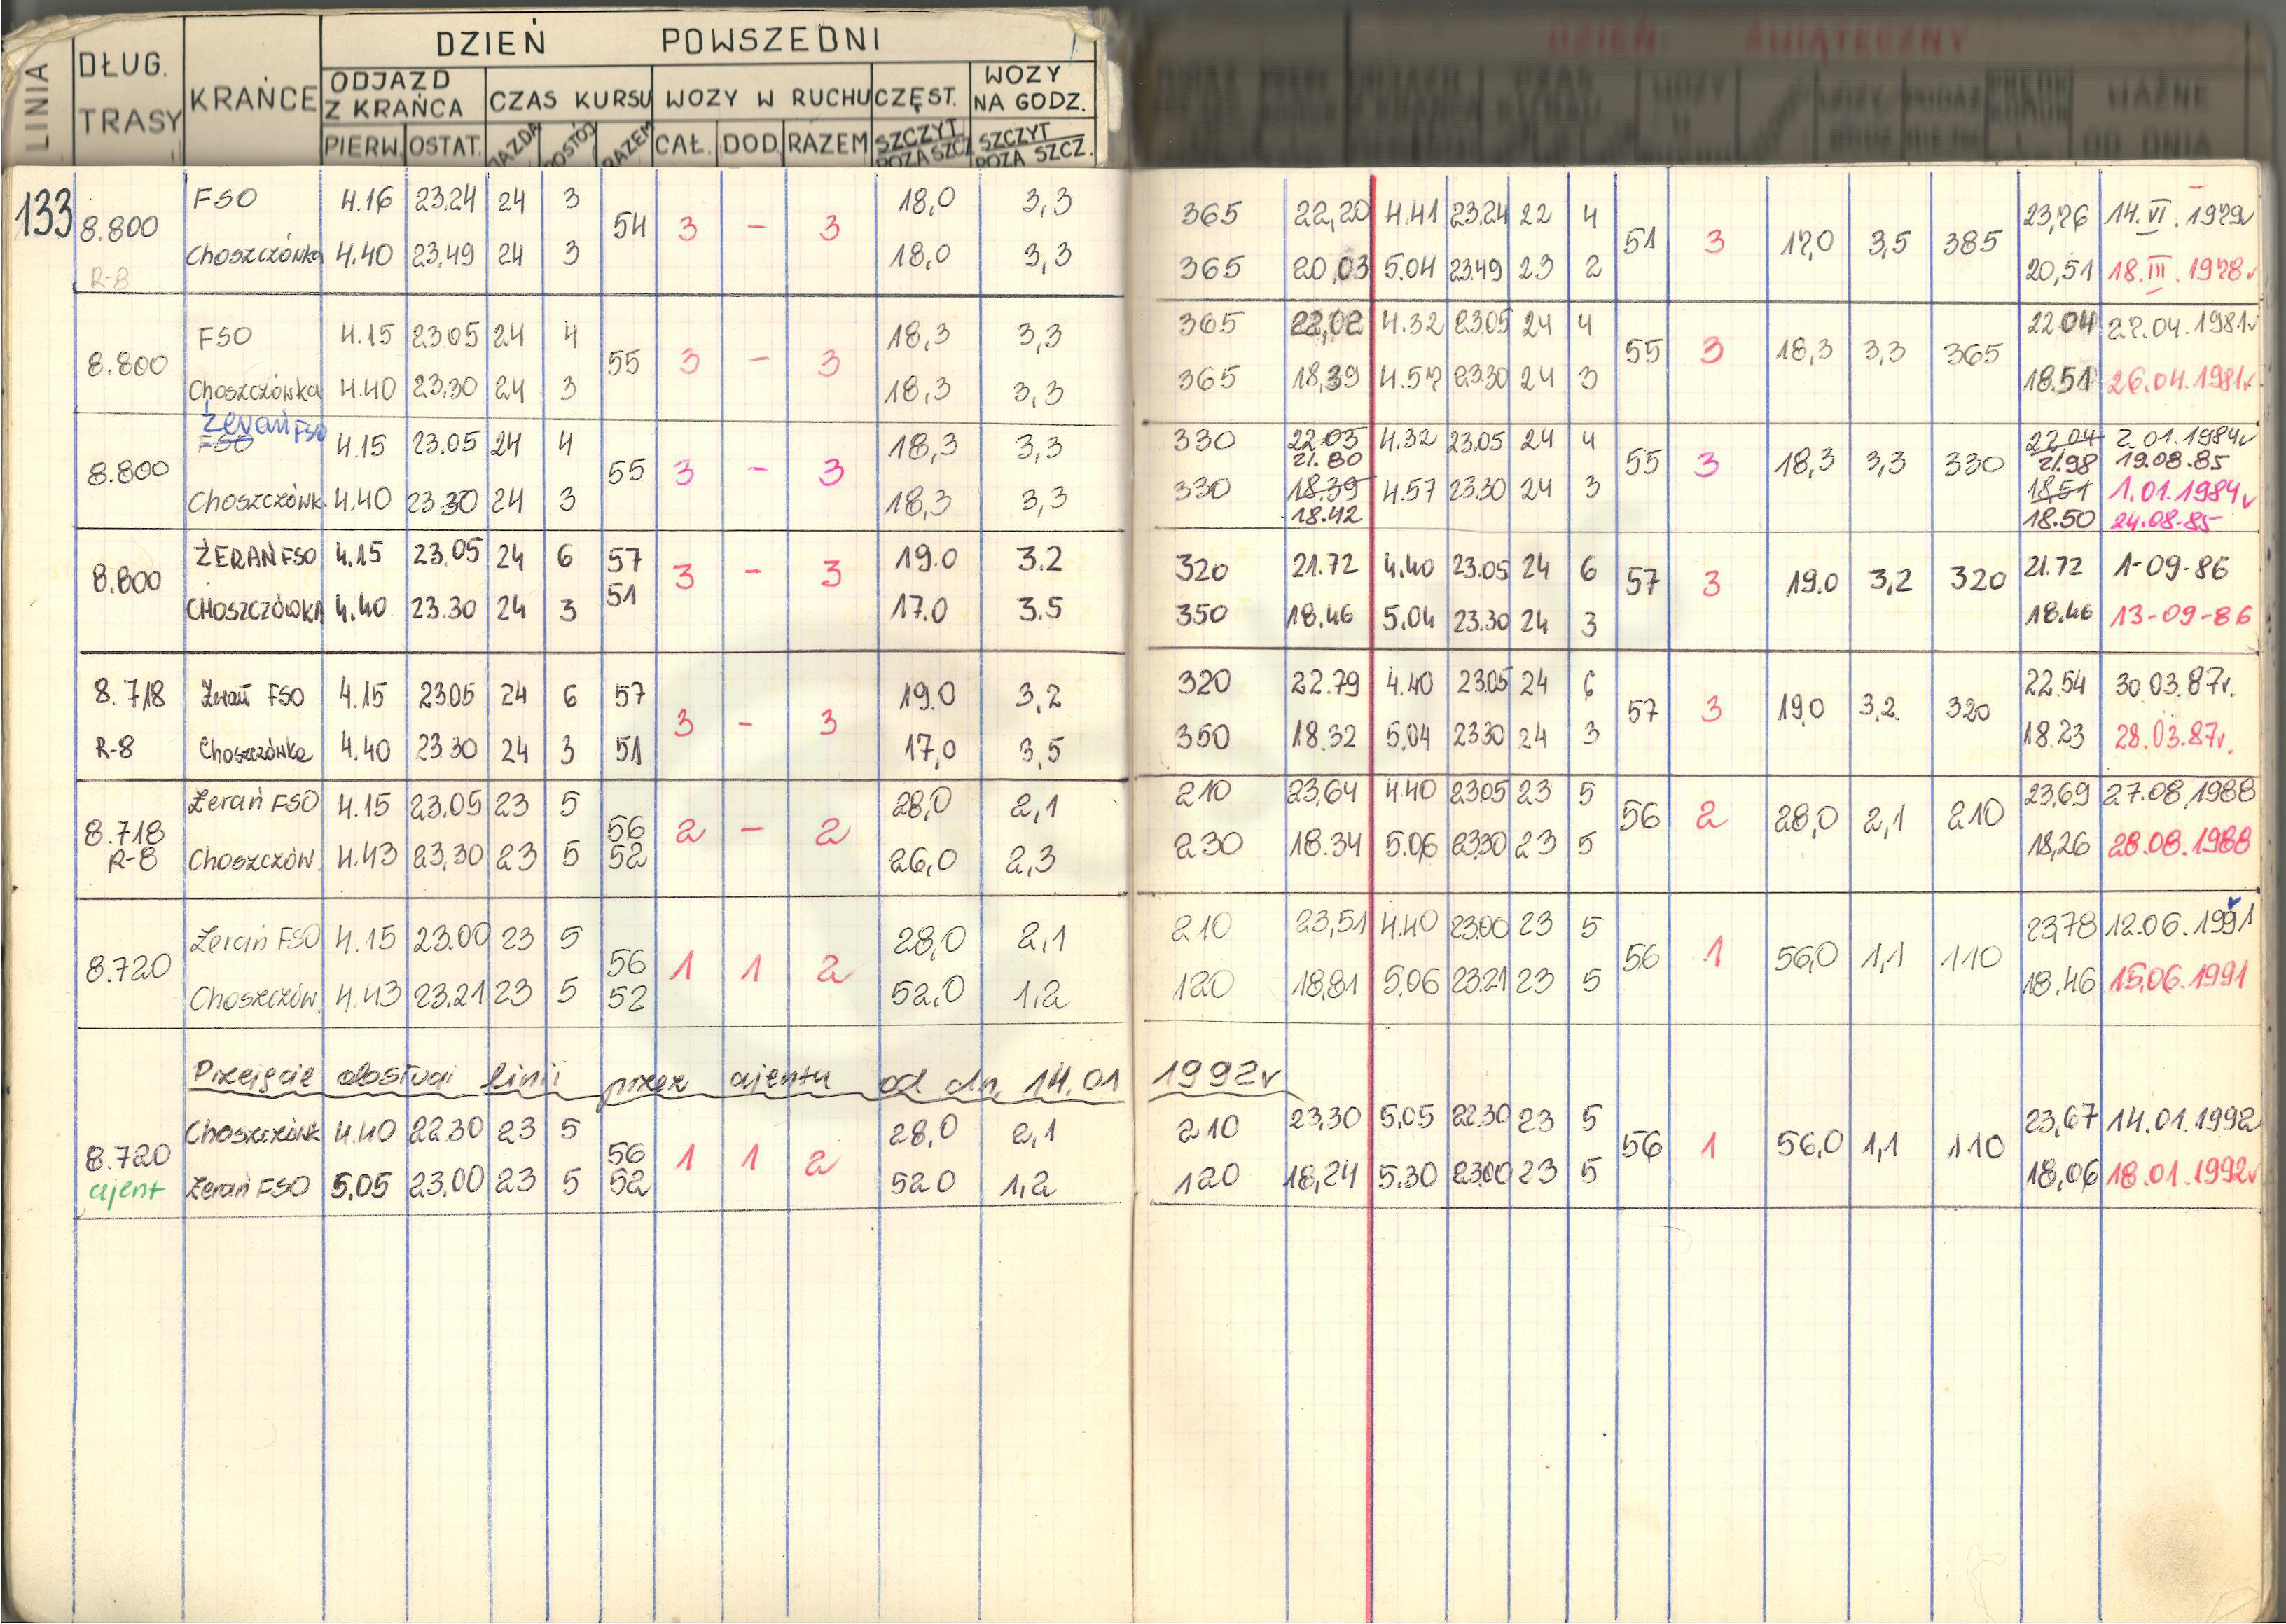 DZIEŃ POWSZEDNI
DZIEŃ ŚWIĄTECZNY
LINIA DŁUG. TRASY KRAŃCE ODJAZD Z KRAŃCA CZAS KURSU WOZY W RUCHU CZĘST. WOZY NA GODZ.
PIERW. OSTAT. JAZDA POSTÓJ RAZEM CAŁ. DOD. RAZEM SZCZYT POZA SZCZ. SZCZYT POZA SZCZ.
WAŻNE OD DNIA
133 8.800 R-8
FSO 4.16 23.24 24 3 54 3 - 3 18,0 3,3 365 22,20 4.41 23.24 22 4 51 3 17,0 3,5 385 23,76 14.VI.1979r
Choszczówka 4.40 23.49 24 3 18,0 3,3 365 20,03 5.04 23.49 23 2 20,51 18.III.1978r
8.800 FSO 4.15 23.05 24 4 55 3 - 3 18,3 3,3 365 22,02 4.32 23.05 24 4 55 3 18,3 3,3 365 22 04 27.04.1981r
Choszczówka 4.40 23.30 24 3 18,3 3,3 365 18,39 4.57 23.30 24 3 18.51 26.04.1981r
Żerań FSO
8.800 FSO 4.15 23.05 24 4 55 3 - 3 18,3 3,3 330 22 03 4.32 23.05 24 4 55 3 18,3 3,3 330 22 04 2.01.1984r
21.80 21.98 19.08.85
Choszczówk. 4.40 23.30 24 3 18,3 3,3 330 18.39 4.57 23.30 24 3 18.51 1.01.1984r
18.42 18.50 24.08.85
8.800 ŻERAŃ FSO 4.15 23.05 24 6 57 3 - 3 19.0 3.2 320 21.72 4.40 23.05 24 6 57 3 19.0 3,2 320 21.72 1-09-86
CHOSZCZÓWKA 4.40 23.30 24 3 51 17.0 3.5 350 18.46 5.04 23.30 24 3 18.46 13-09-86
8.718 Żerań FSO 4.15 23.05 24 6 57 3 - 3 19.0 3,2 320 22.79 4.40 23.05 24 6 57 3 19,0 3,2. 320 22.54 30 03.87r.
R-8 Choszczówka 4.40 23 30 24 3 51 17,0 3,5 350 18.32 5,04 23 30 24 3 18.23 28.03.87r.
8.718 Żerań FSO 4.15 23.05 23 5 56 2 - 2 28,0 2,1 210 23,64 4.40 23.05 23 5 56 2 28,0 2,1 210 23,69 27.08.1988
R-8 Choszczów. 4.43 23,30 23 5 52 26,0 2,3 230 18.34 5.06 23.30 23 5 18,26 28.08.1988
8.720 Żerań FSO 4.15 23.00 23 5 56 1 1 2 28,0 2,1 210 23,51 4.40 23.00 23 5 56 1 56,0 1,1 110 23,78 12.06.1991
Choszczów. 4.43 23.21 23 5 52 52.0 1,2 120 18,81 5.06 23.21 23 5 18.46 15.06.1991
Przejęcie obsługi linii przez ajenta od dn. 14.01 1992r
8.720 Choszczówk 4.40 22.30 23 5 56 1 1 2 28,0 2,1 210 23,30 5,05 22.30 23 5 56 1 56,0 1,1 110 23,67 14.01.1992
ajent Żerań FSO 5.05 23.00 23 5 52 52 0 1,2 120 18,24 5.30 23.00 23 5 18,06 18.01.1992r